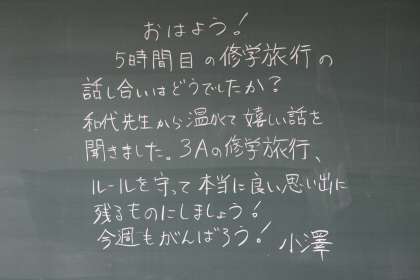 おはよう!
5時間目の修学旅行の
話し合いはどうでしたか?
和代先生から温かくて嬉しい話を
聞きました。3Aの修学旅行、
ルールを守って本当に良い思い出に
残るものにしましょう!
今週もがんばろう! 小澤